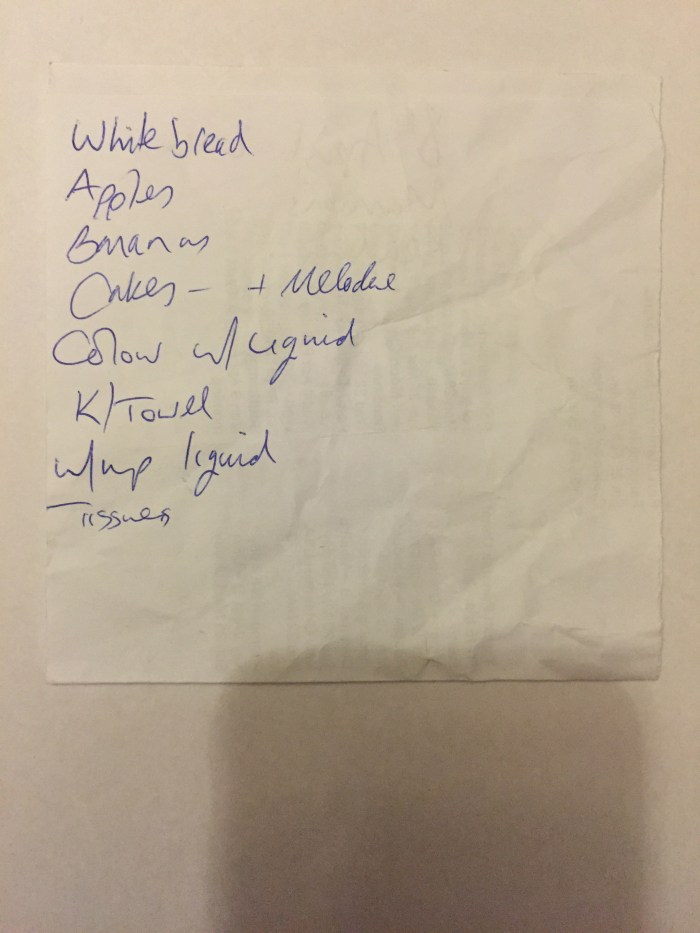 White bread
Apples
Bananas
Cakes - +
Colour w/ liquid
K/Towel
w/up liquid
Tissues